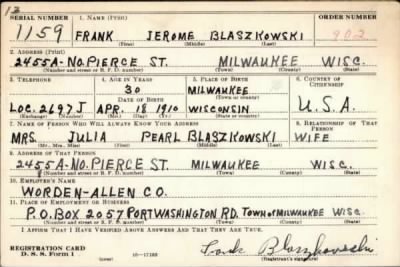 12
SERIAL NUMBER 1. NAME (Print) ORDER NUMBER
1159 FRANK JEROME BLASZKOWSKI 902
(First) (Middle) (Last)
2. ADDRESS (Print)
2455A-NO. PIERCE ST. MILWAUKEE WISC.
(Number and street or R. F. D. number) (Town) (County) (State)
3. TELEPHONE 4. AGE IN YEARS 5. PLACE OF BIRTH 6. COUNTRY OF CITIZENSHIP
30 MILWAUKEE
DATE OF BIRTH (Town or county)
LOC. 2697J APR. 18 1910 WISCONSIN U.S.A.
(Exchange) (Number) (Mo.) (Day) (Yr.) (State or country)
7. NAME OF PERSON WHO WILL ALWAYS KNOW YOUR ADDRESS 8. RELATIONSHIP OF THAT PERSON
MRS. JULIA PEARL BLASZKOWSKI WIFE
(Mr., Mrs., Miss) (First) (Middle) (Last)
9. ADDRESS OF THAT PERSON
2455A-NO. PIERCE ST. MILWAUKEE WISC.
(Number and street or R. F. D. number) (Town) (County) (State)
10. EMPLOYER'S NAME
WORDEN-ALLEN CO.
11. PLACE OF EMPLOYMENT OR BUSINESS
P.O. BOX 2057 PORT WASHINGTON RD. TOWN of MILWAUKEE WISC.
(Number and street or R. F. D. number) (Town) (County) (State)
I AFFIRM THAT I HAVE VERIFIED ABOVE ANSWERS AND THAT THEY ARE TRUE.
REGISTRATION CARD
D. S. S. Form 1 (over) 16-17105 Frank Blaszkowski
(Registrant's signature)